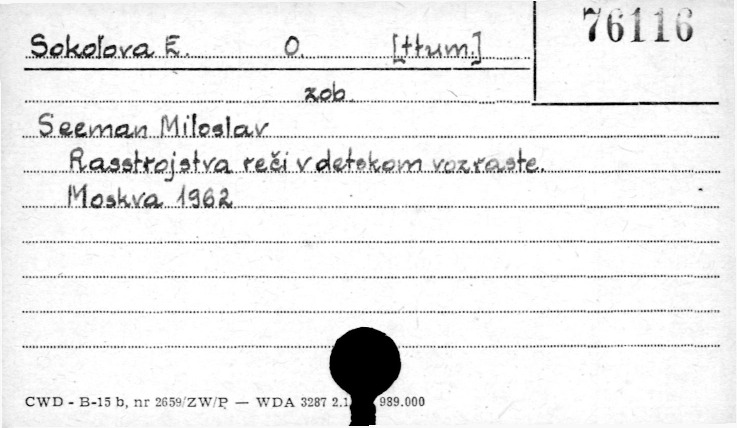 76116
Sokołova E. O. [tłum.]
zob.
Seeman Miloslav
Rasstrojstva reči v detskom vozraste.
Moskva 1962
CWD - B-15 b, nr 2659/ZW/P — WDA 3287 2.1 989.000